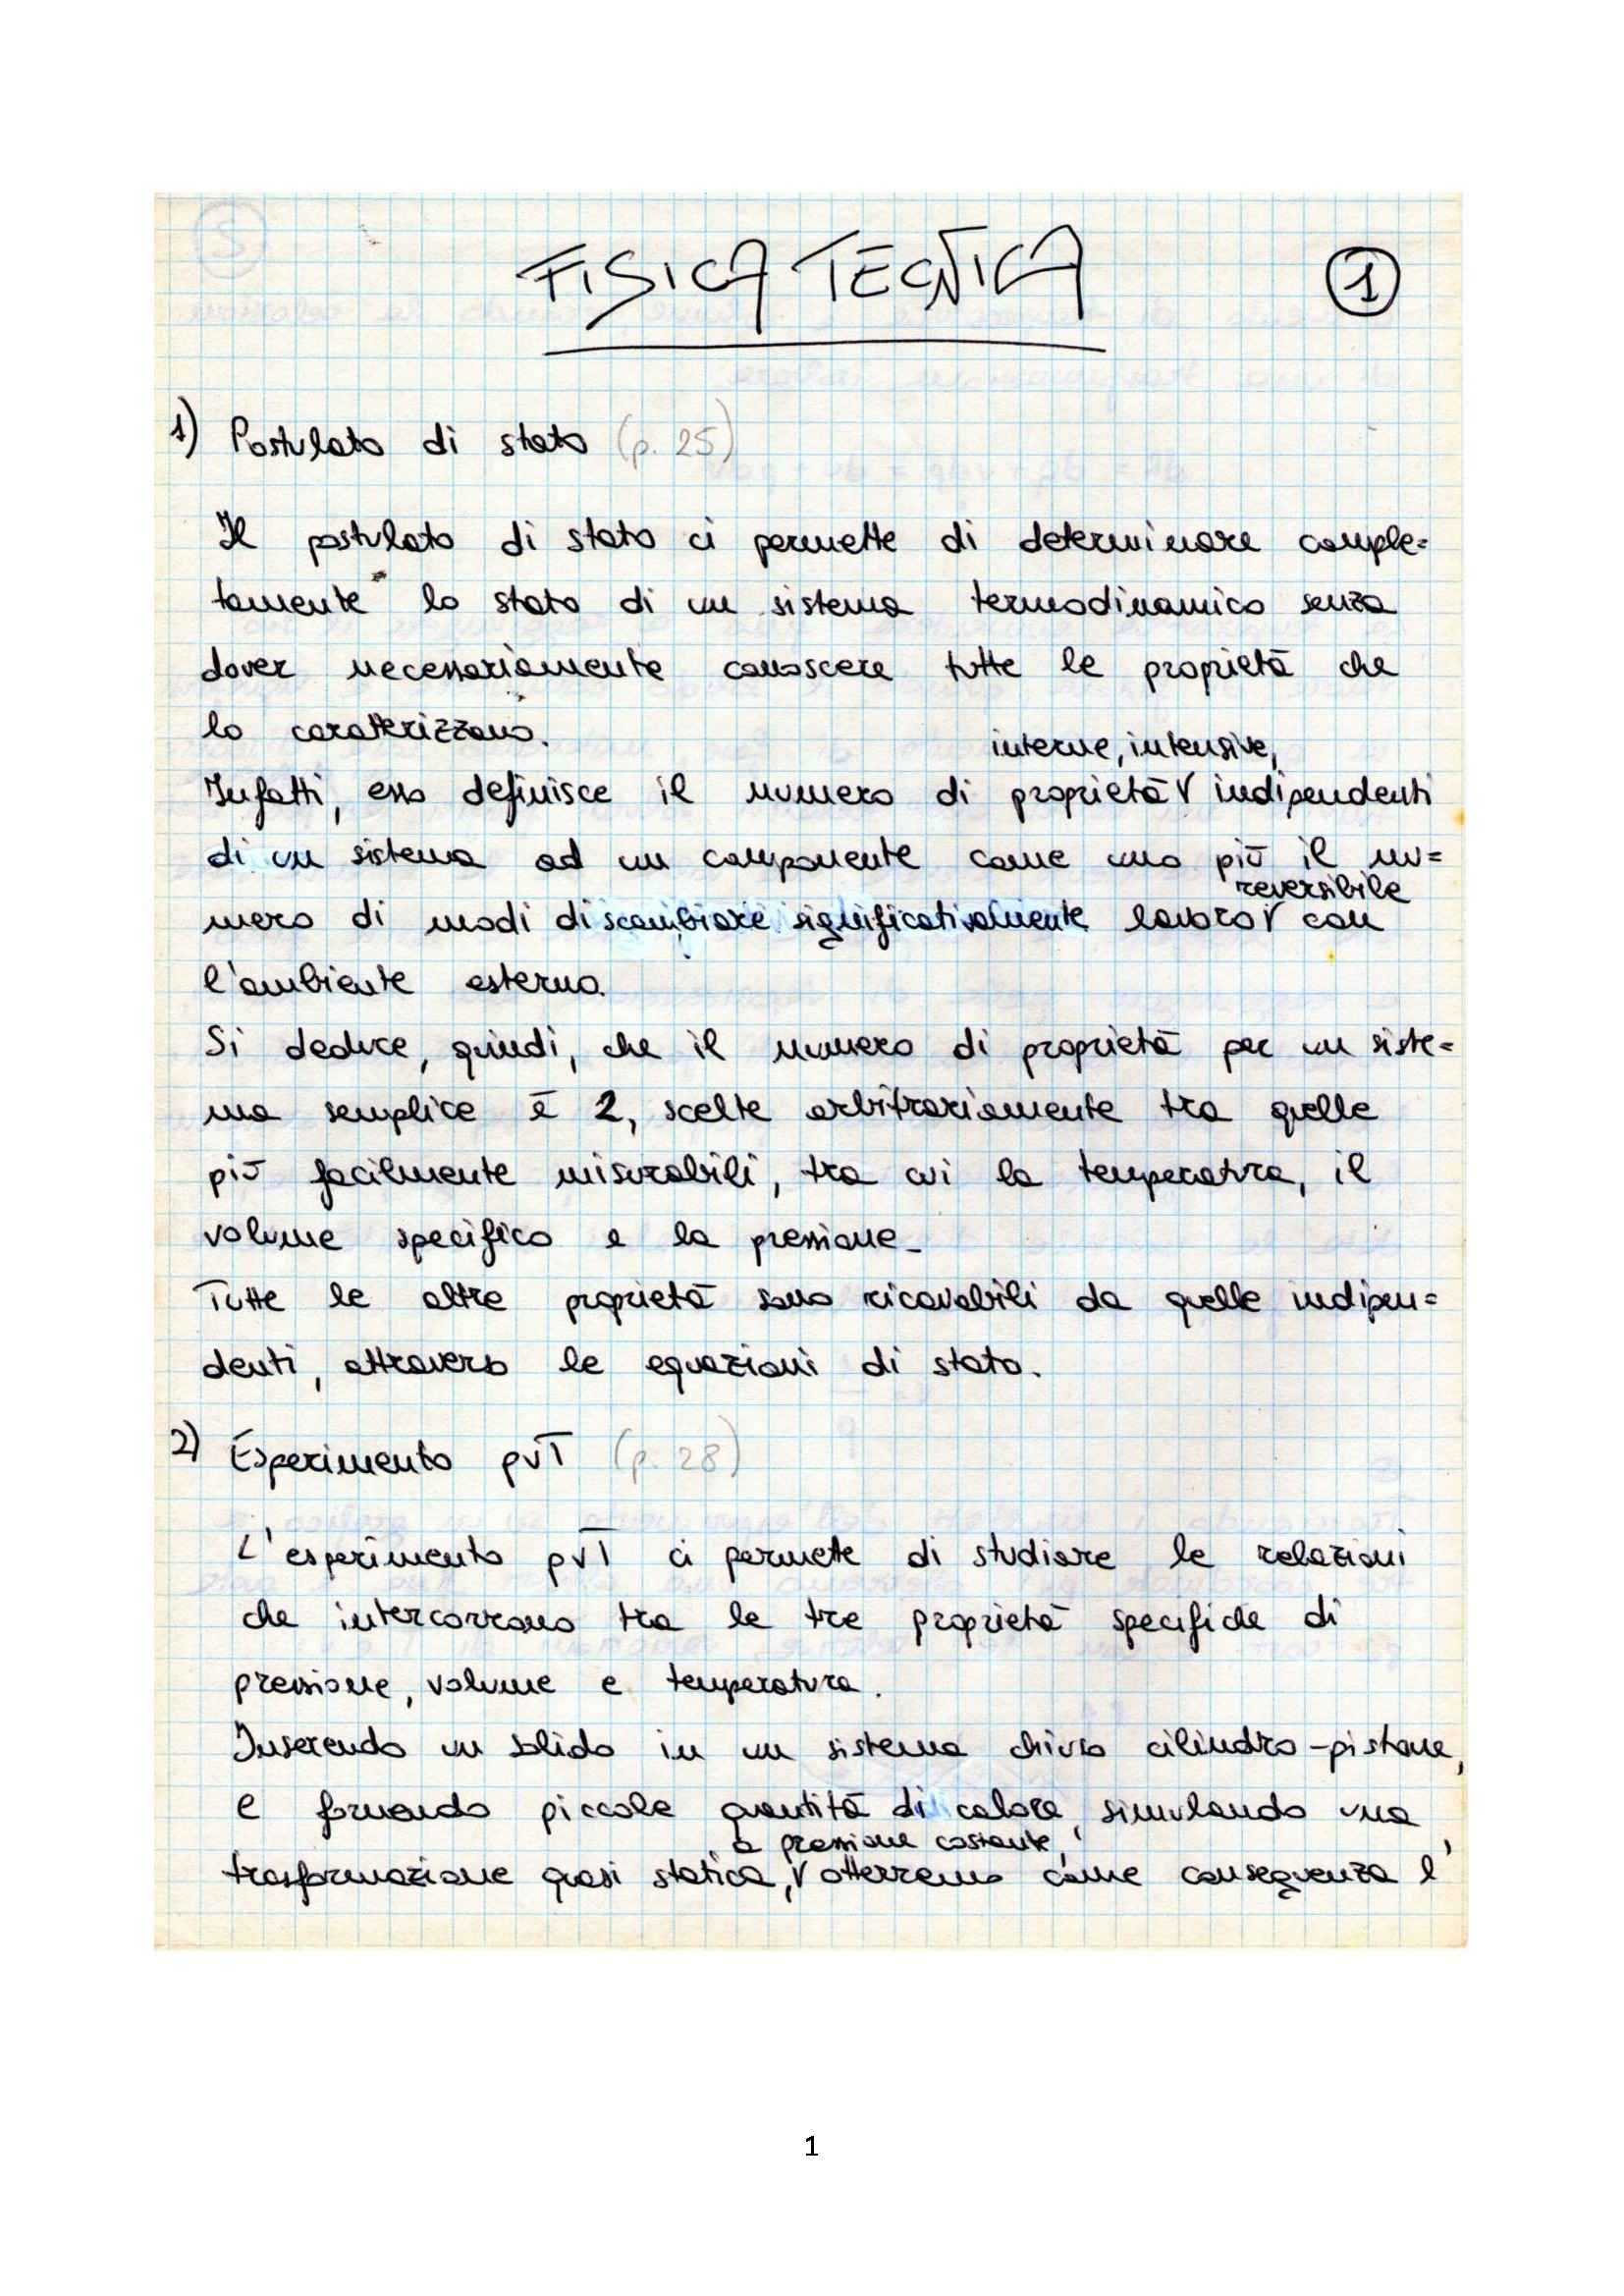 FISICA TECNICA
1
1) Postulato di stato (p. 25)
Il postulato di stato ci permette di determinare comple=
tamente lo stato di un sistema termodinamico senza
dover necessariamente conoscere tutte le proprietà che
lo caratterizzano.
interne, intensive,
Infatti, esso definisce il numero di proprietà V indipendenti
di un sistema ad un componente come uno più il nu=
reversibile
mero di modi di scambiare significativamente lavoro V con
l'ambiente esterno.
Si deduce, quindi, che il numero di proprietà per un siste=
ma semplice è 2, scelte arbitrariamente tra quelle
più facilmente misurabili, tra cui la temperatura, il
volume specifico e la pressione_
Tutte le altre proprietà sono ricavabili da quelle indipen=
denti, attraverso le equazioni di stato.
2) Esperimento pvT (p. 28)
L'esperimento pvT ci permette di studiare le relazioni
che intercorrono tra le tre proprietà specifiche di
pressione, volume e temperatura.
Inserendo un solido in un sistema chiuso cilindro-pistone,
e fornendo piccole quantità di calore, simulando una
a pressione costante,
trasformazione quasi statica, V otterremo come conseguenza l'
1